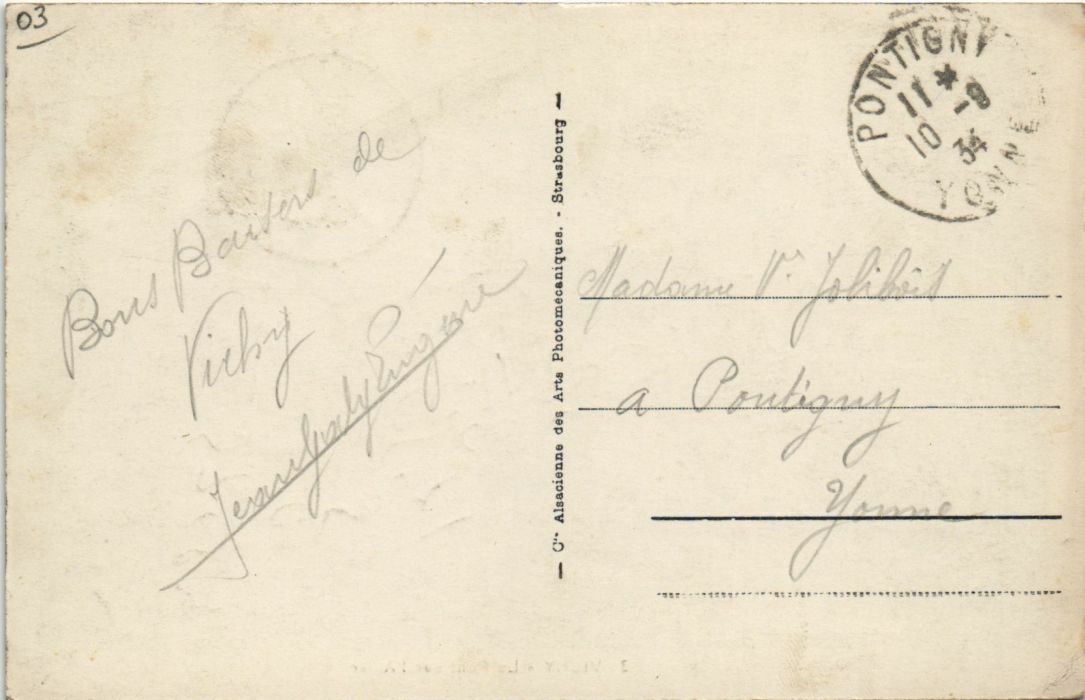 03
Bons Baisers de
Vichy
Jean Gaby Eugène
— Cie Alsacienne des Arts Photomecaniques. - Strasbourg —
PONTIGNY
11 * -8
10 34
YONNE
Madame Ve Jolibois
a Pontigny
Yonne